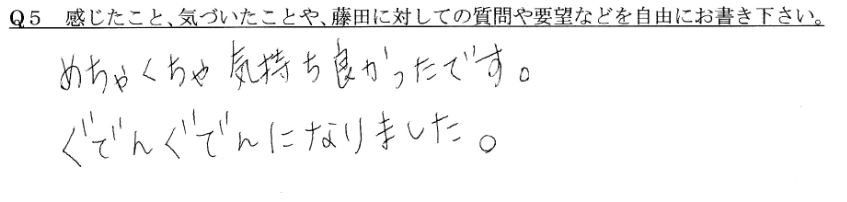 Q5 感じたこと、気づいたことや、藤田に対しての質問や要望などを自由にお書き下さい。
めちゃくちゃ気持ち良かったです。
ぐでんぐでんになりました。